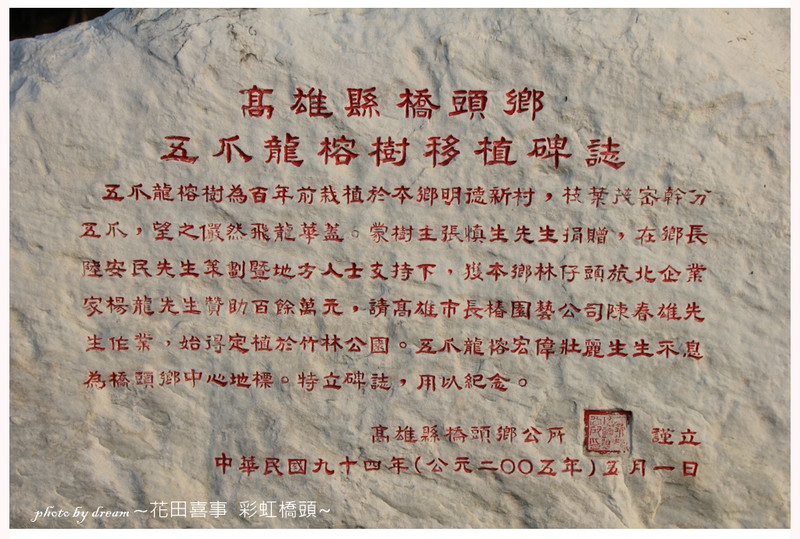 高雄縣橋頭鄉
五爪龍榕樹移植碑誌
五爪龍榕樹為百年前栽植於本鄉明德新村，枝葉茂密幹分
五爪，望之儼然飛龍華蓋。蒙樹主張慎生先生捐贈，在鄉長
陸安民先生策劃暨地方人士支持下，獲本鄉林仔頭旅北企業
家楊龍先生贊助百餘萬元，請高雄市長椿園藝公司陳春雄先
生作業，始得定植於竹林公園。五爪龍榕宏偉壯麗生生不息
為橋頭鄉中心地標。特立碑誌，用以紀念。
高雄縣橋頭鄉公所 謹立
中華民國九十四年(公元二〇〇五年)五月一日
photo by dream ~花田喜事 彩虹橋頭~